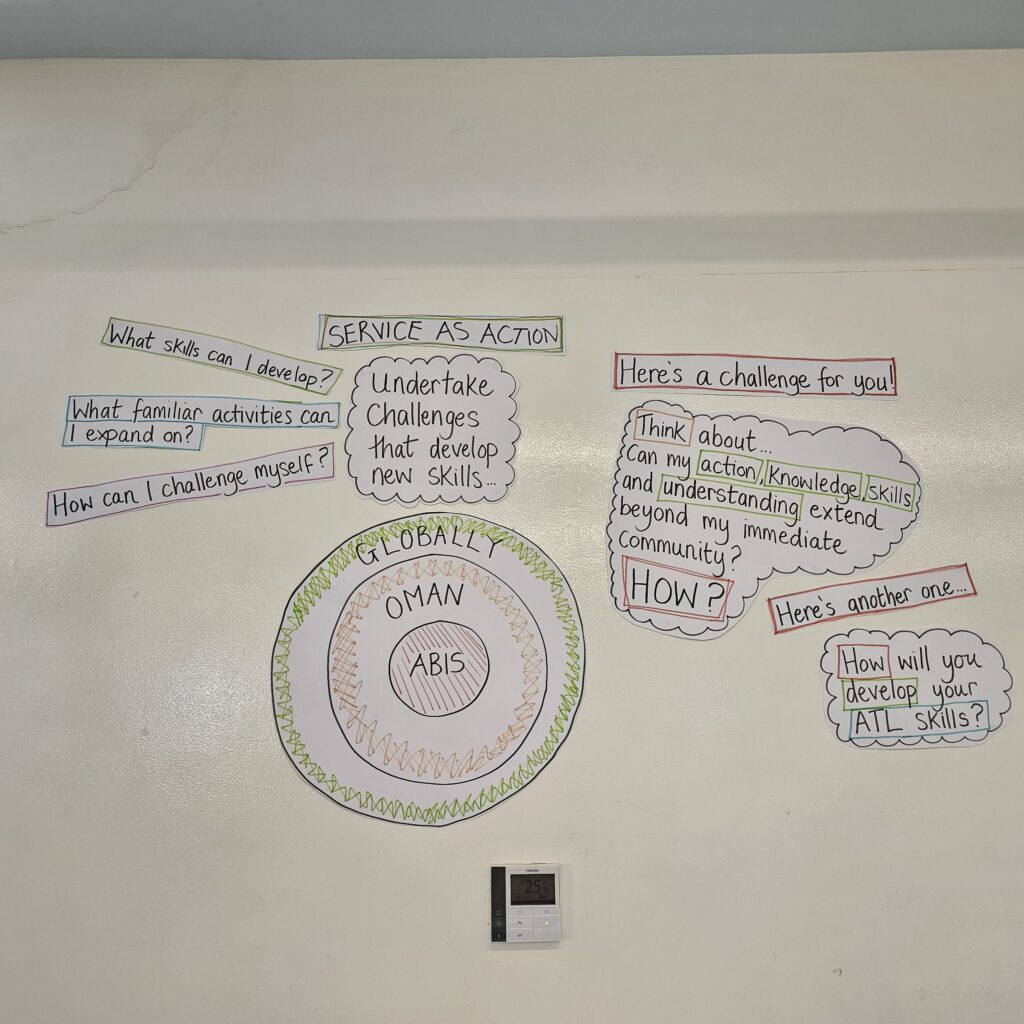 SERVICE AS ACTION
What skills can I develop?
What familiar activities can
I expand on?
How can I challenge myself?
Undertake
Challenges
that develop
new skills...
GLOBALLY
OMAN
ABIS
Here's a challenge for you!
Think about...
Can my action, Knowledge, skills
and understanding extend
beyond my immediate
community?
HOW?
Here's another one...
How will you
develop your
ATL skills?
25